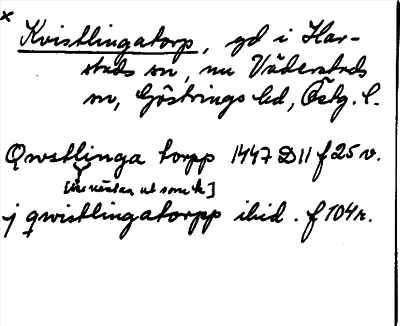 x
Kvistlingatorp, gd i Har-
stads sn, nu Väderstads
sn, Göstrings hd, Östg. l.
Qwstlinga torpp 1447 D 11 f 25 v.
[ser nästan ut som k]
j qwistlingatorpp ibid. f 104 r.